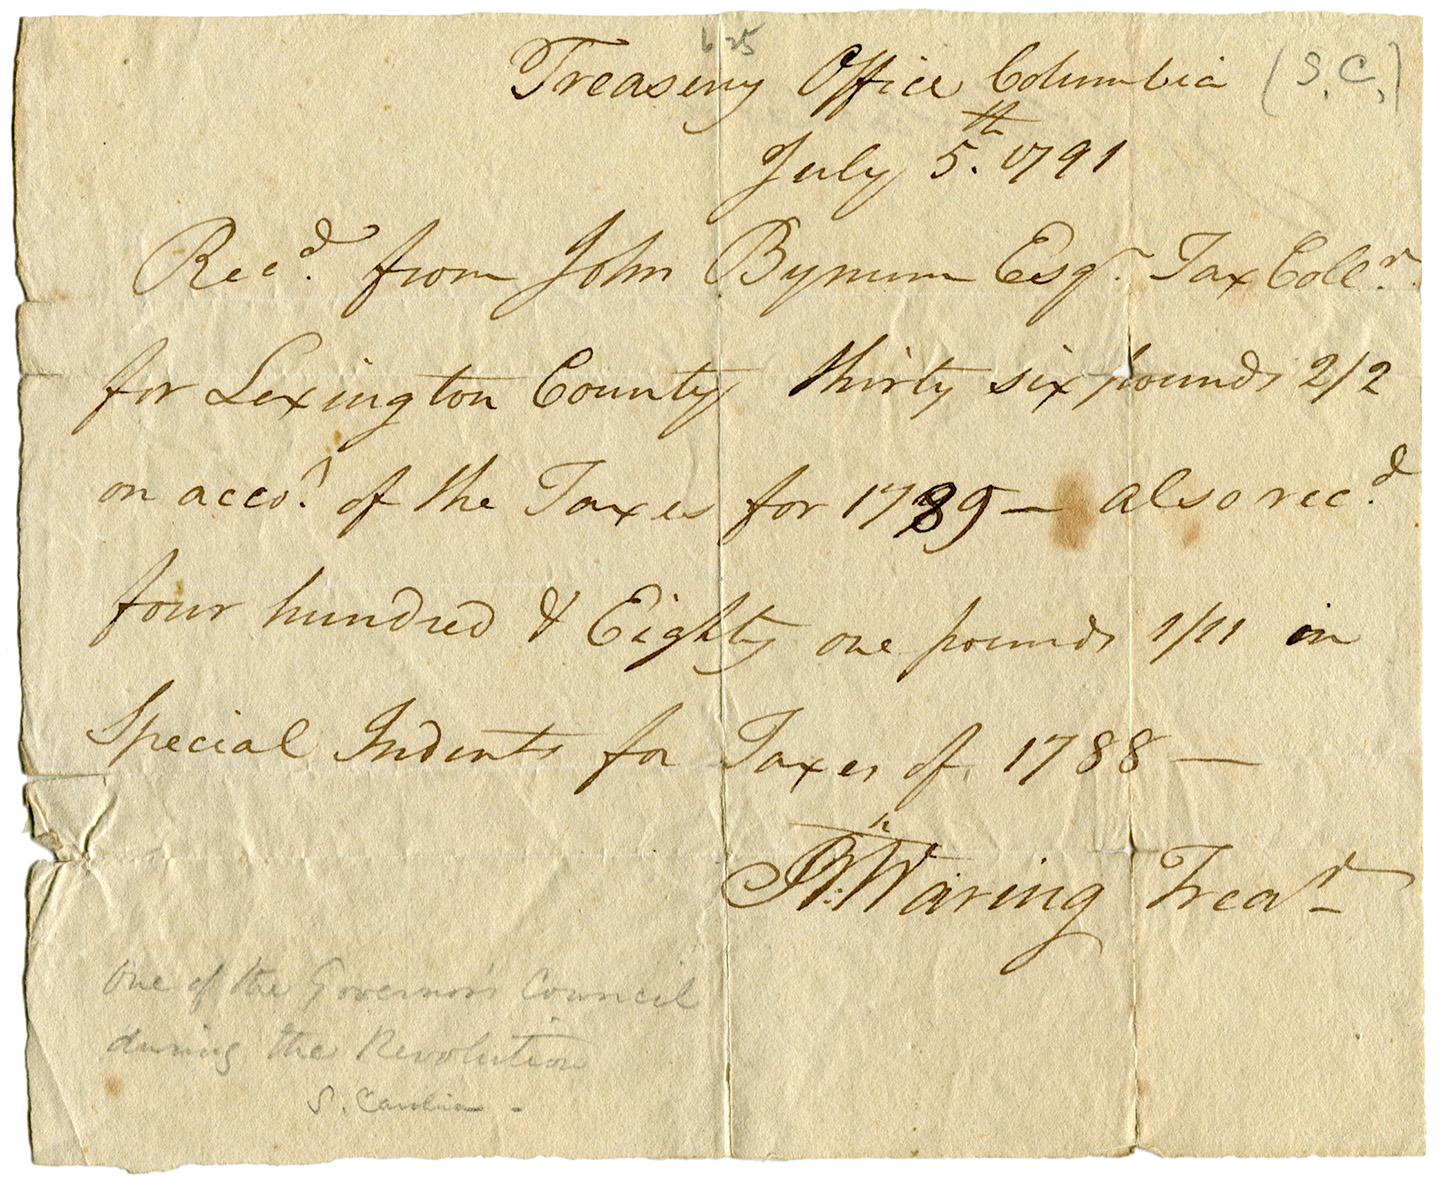 6 25
Treasury Office Columbia (S.C.)
July 5.th 1791
Recd. from John Bynum Esqr. Tax Collr.
for Lexington County thirty six pounds 2/2
on accot. of the Taxes for 1789 — also recd.
four hundred & Eighty one pounds 1/11 in
Special Indents for Taxes of 1788 —
Waring Trear
One of the Governor's Council
during the Revolution
S. Carolina -